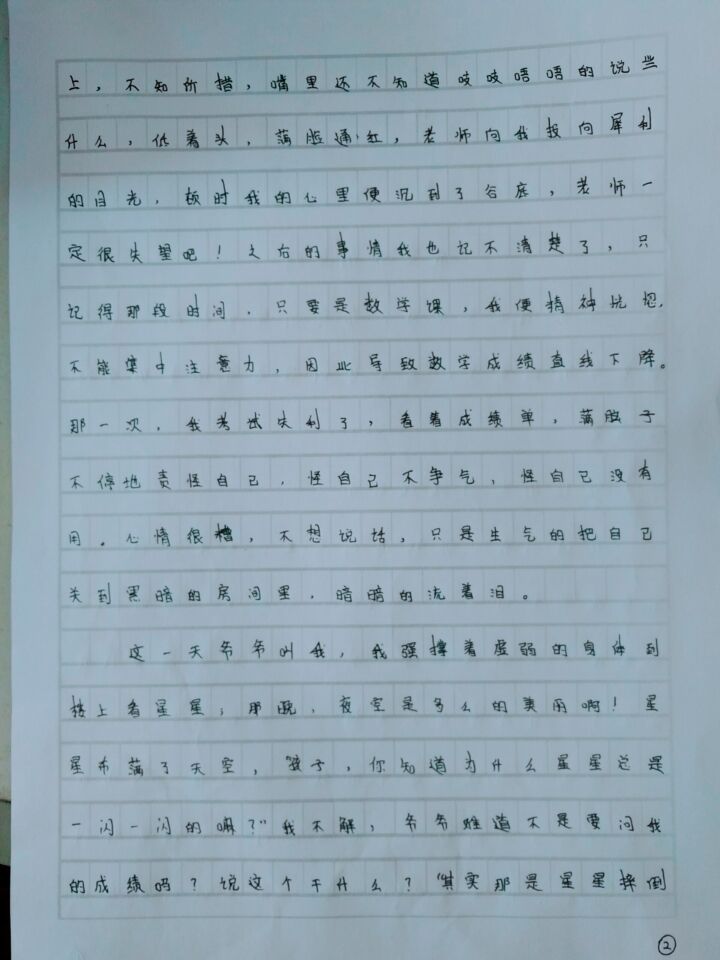 上，不知所措，嘴里还不知道吱吱唔唔的说些
什么，低着头，满脸通红，老师向我投向犀利
的目光，顿时我的心里便沉到了谷底，老师一
定很失望吧！之后的事情我也记不清楚了，只
记得那段时间，只要是数学课，我便精神恍忽，
不能集中注意力，因此导致数学成绩直线下降。
那一次，我考试失利了，看着成绩单，满脑子
不停地责怪自己，怪自己不争气，怪自己没有
用。心情很糟，不想说话，只是生气的把自己
关到黑暗的房间里，暗暗的流着泪。
这一天爷爷叫我，我强撑着虚弱的身体到
楼上看星星，那晚，夜空是多么的美丽啊！星
星布满了天空，“孩子，你知道为什么星星总是
一闪一闪的嘛？”我不解，爷爷难道不是要问我
的成绩吗？说这个干什么？“其实那是星星摔倒
②